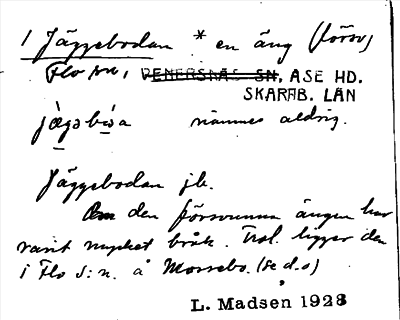 1 Jäggebodan * en äng (försv)
Flo sn, VENERSNÄS SN, ÅSE HD.
SKARAB. LÄN
nämnes aldrig.
Jäggebodan jb.
Om den försvunna ängen har
varit mycket bråk. Trol. ligger den
i Flo s:n. å Mossebo. (se d.o)
L. Madsen 1928